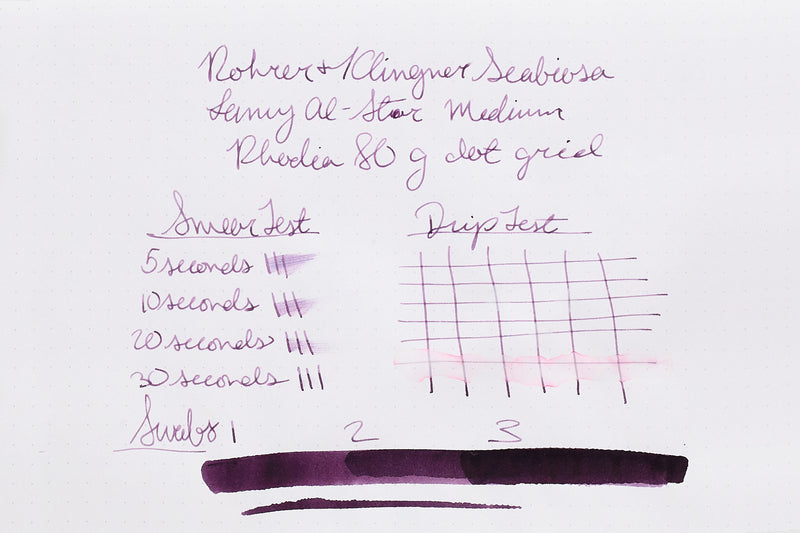 Rohrer + Klingner Scabiosa
Lamy Al-Star Medium
Rhodia 80 g dot grid
Smear Test
Drip Test
5 seconds
10 seconds
20 seconds
30 seconds
Swabs 1 2 3